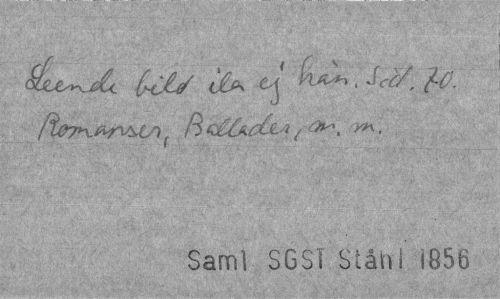 Leende bild ila ej hän. Sid. 70.
Romanser, Ballader, m. m.
Saml SGST Ståhl 1856